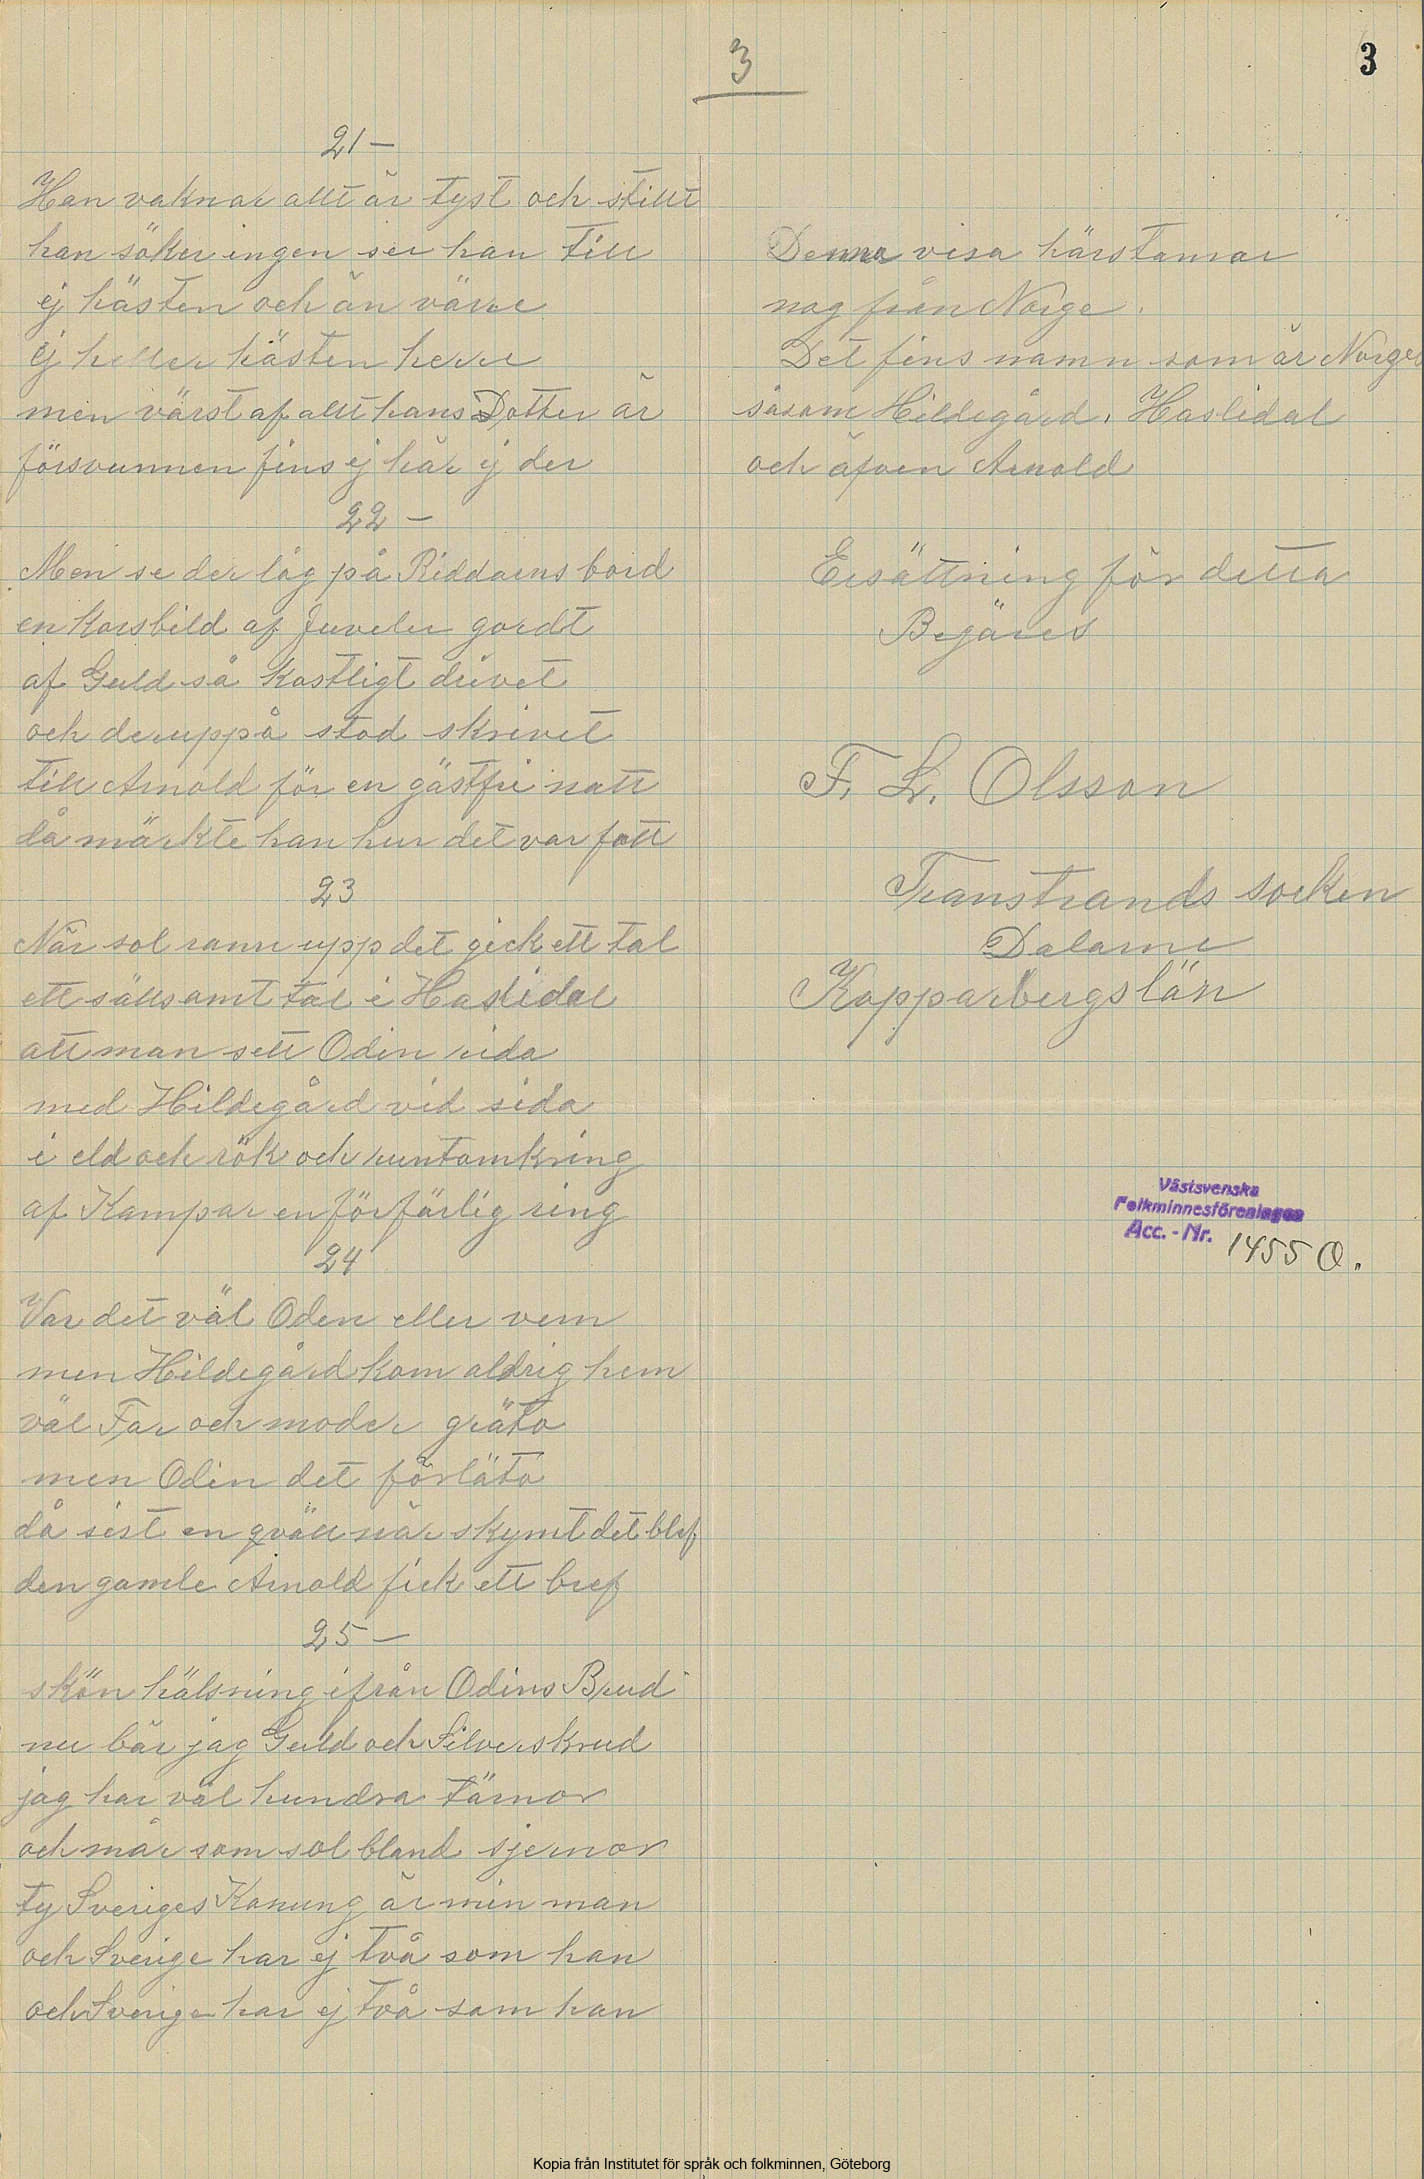 3
3
21 –
Han vaknar allt är tyst och stillt
han söker ingen ser han till
ej hästen och än värre
ej heller hästen herre
men värst af allt hans Dotter är
försvunnen fins ej här ej der
22 –
Men se der låg på Riddarens bord
en Korsbild af Juveler gordt
af Guld så Kostligt drivet
och deruppå stod skrivet
till Arnold för en gästfri natt
då märkte han hur det var fatt
23
När sol rann upp det gick ett tal
ett sällsamt tal i Haslidal
att man sett Odin rida
med Hildegård vid sida
i eld och rök och runtomkring
af Kampar en förfärlig ring
24
Var det väl Oden eller vem
men Hildegård kom aldrig hem
väl Far och moder gräto
men Odin det förläto
då sist en qväll när skymt det blef
den gamle Arnold fick ett bref
25 –
skön hälsning ifrån Odins Brud
nu bär jag Guld och Silverskrud
jag har väl hundra tärnor
och mår som sol bland sjernor
ty Sveriges Konung är min man
och Sverige har ej två som han
och Sverige har ej två som han
Denna visa härstamar
nog från Norge.
Det fins namn som är Norges
såsom Hildegård, Haslidal
och äfven Arnold
Ersättning för detta
Begäres
F. L. Olsson
Transtrands socken
Dalarne
Kopparbergslän
Västsvenska
Folkminnesföreningen
Acc. - Nr. 1455 O.
Kopia från Institutet för språk och folkminnen, Göteborg